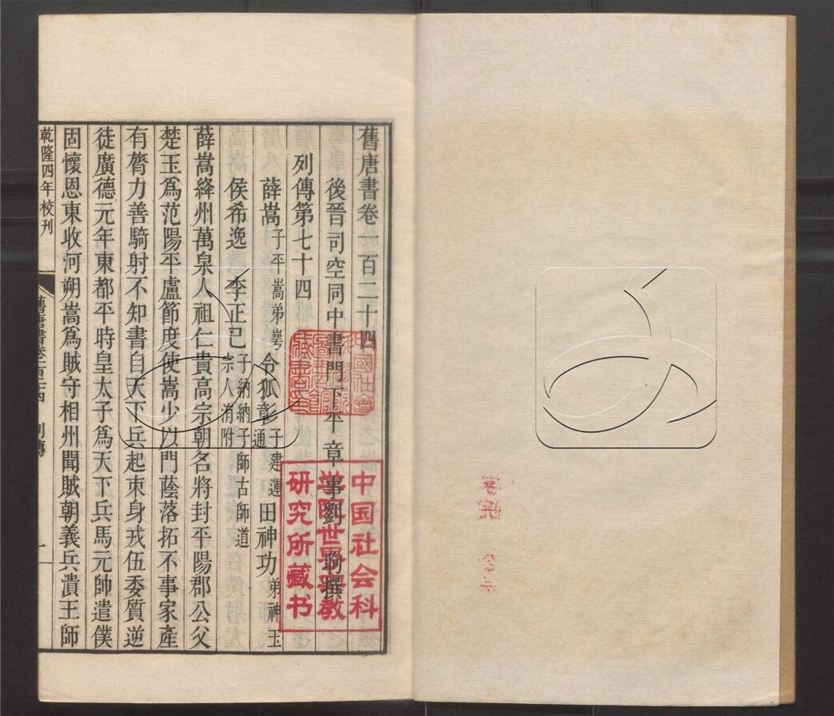 舊唐書卷一百二十四
後晉司空同中書門下平章事劉昫撰
列傳第七十四
薛嵩 子平 嵩弟𡸫 令狐彰 子建 運 通 田神功 弟神玉
侯希逸 李正己 子納 納子師古 師道 宗人洧附
薛嵩絳州萬泉人祖仁貴高宗朝名將封平陽郡公父
楚玉爲范陽平盧節度使嵩少以門蔭落拓不事家產
有膂力善騎射不知書自天下兵起束身戎伍委質逆
徒廣德元年東都平時皇太子爲天下兵馬元帥遣僕
固懷恩東收河朔嵩爲賊守相州聞賊朝義兵潰王師
乾隆四年校刊
舊唐書卷一百二十四 列傳
一
中国社会科
学院世界宗教
研究所藏书